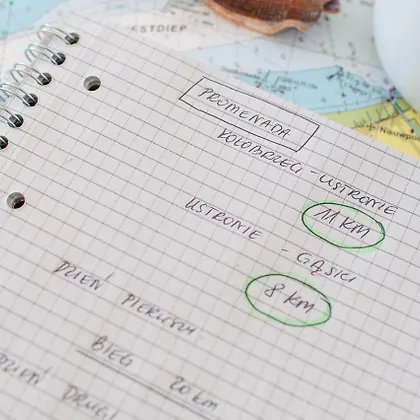 KSTDIEP
Nieuwpo
PROMENADA
KOŁOBRZEG - USTRONIE
11 KM
USTRONIE - GĄSKI
8 KM
DZIEŃ PIERWSZY
BIEG 20 km
DZIEŃ DRUGI